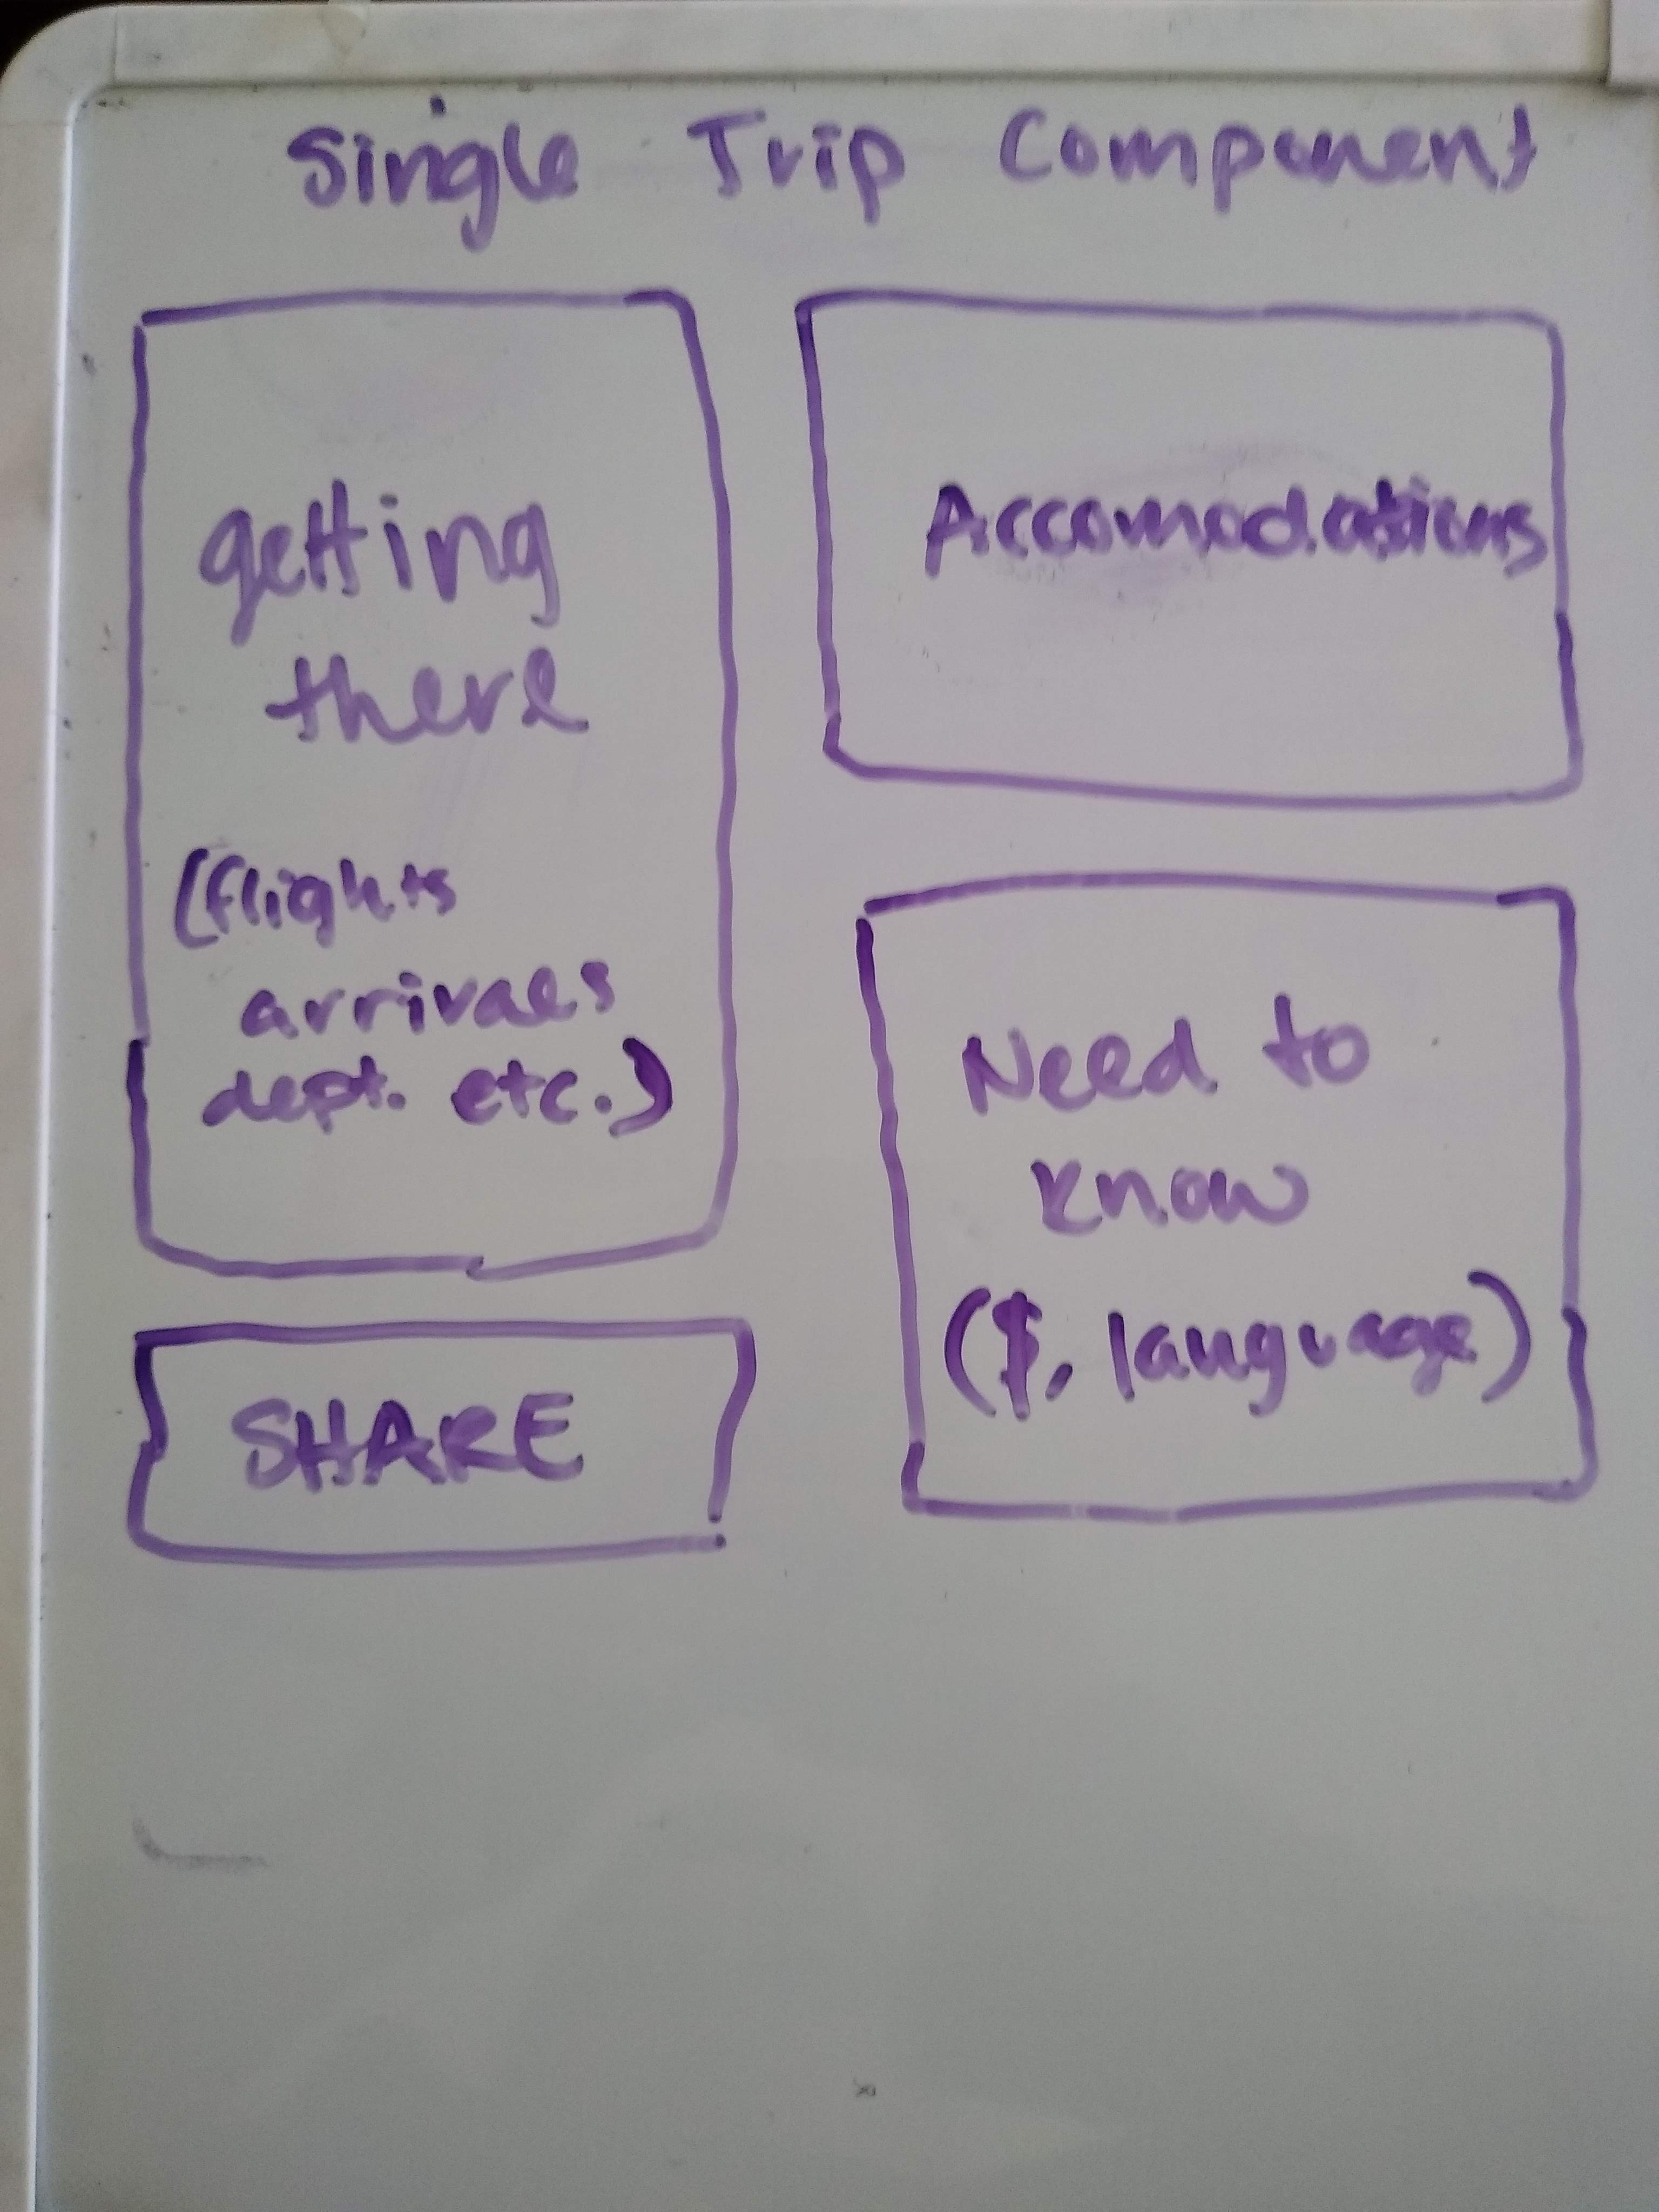 Single Trip Component
getting
there
(flights
arrivals
dept. etc.)
SHARE
Accomodations
Need to
know
($, language)